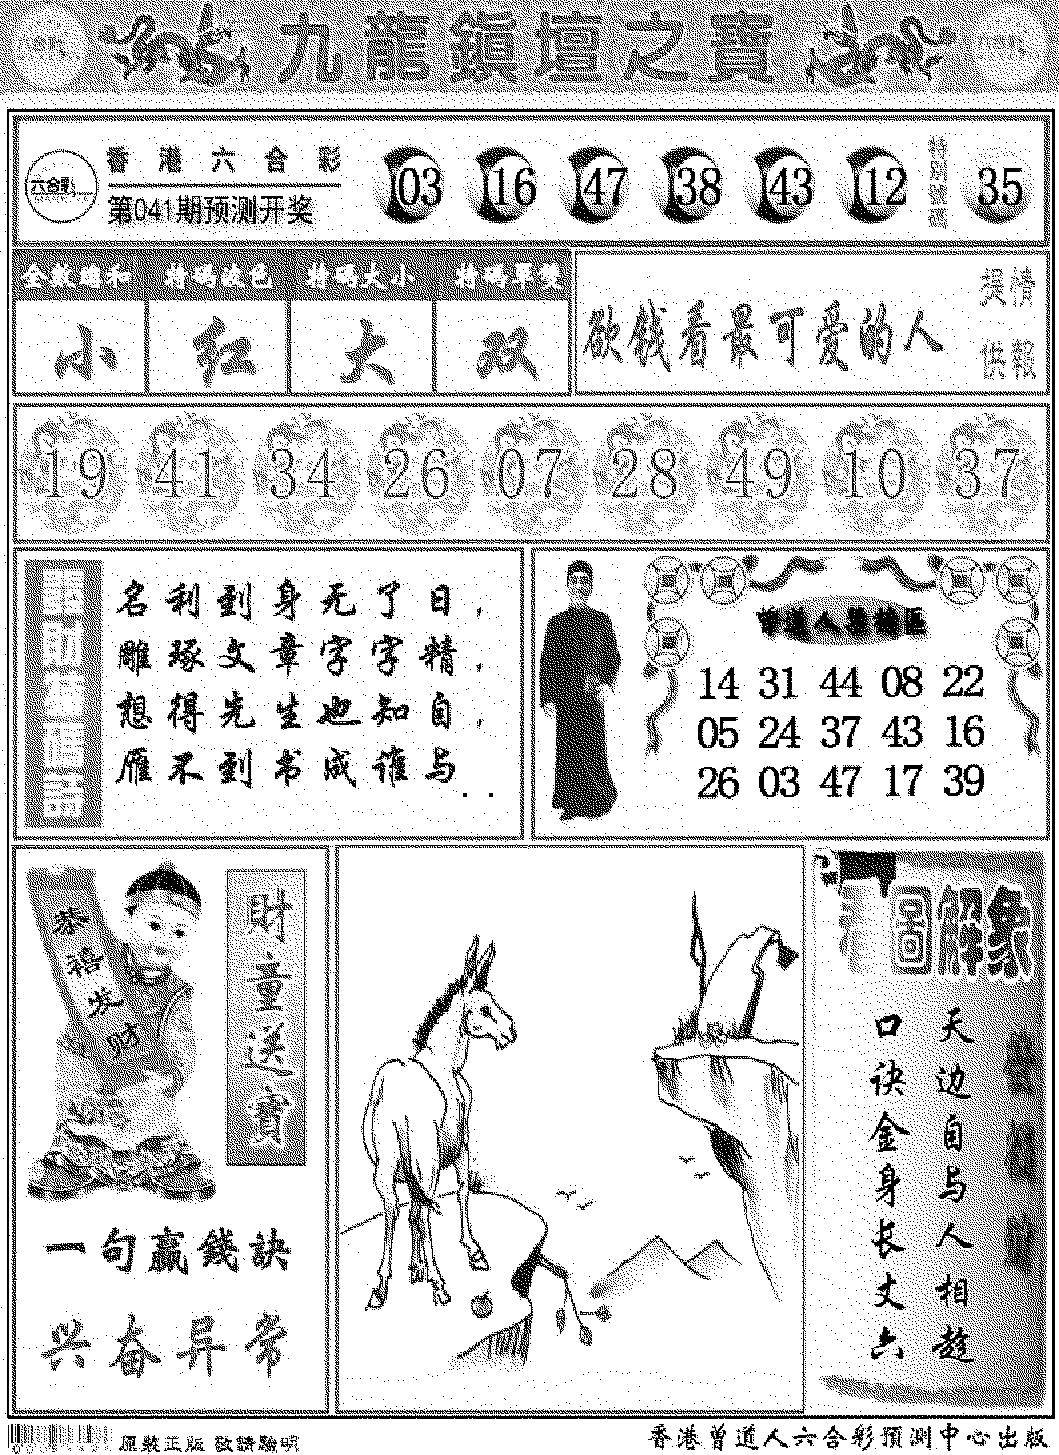 九龍鎮壇之寶
六合彩
香港六合彩
第041期预测开奖
03 16 47 38 43 12
特別號碼
35
特码波色 特码大小
小 红 大 双
欲钱看最可爱的人
供報
19 41 34 26 07 28 49 10 37
名利到身无了日，
雕琢文章字字精，
想得先生也知自，
雁不到书成谁与
..
14 31 44 08 22
05 24 37 43 16
26 03 47 17 39
恭禧发财
財童送寶
一句赢錢訣
兴奋异常
圖解象
天边自与人相趋
口诀金身长丈六
原裝正版 敬請驗明
香港曾道人六合彩預測中心出版